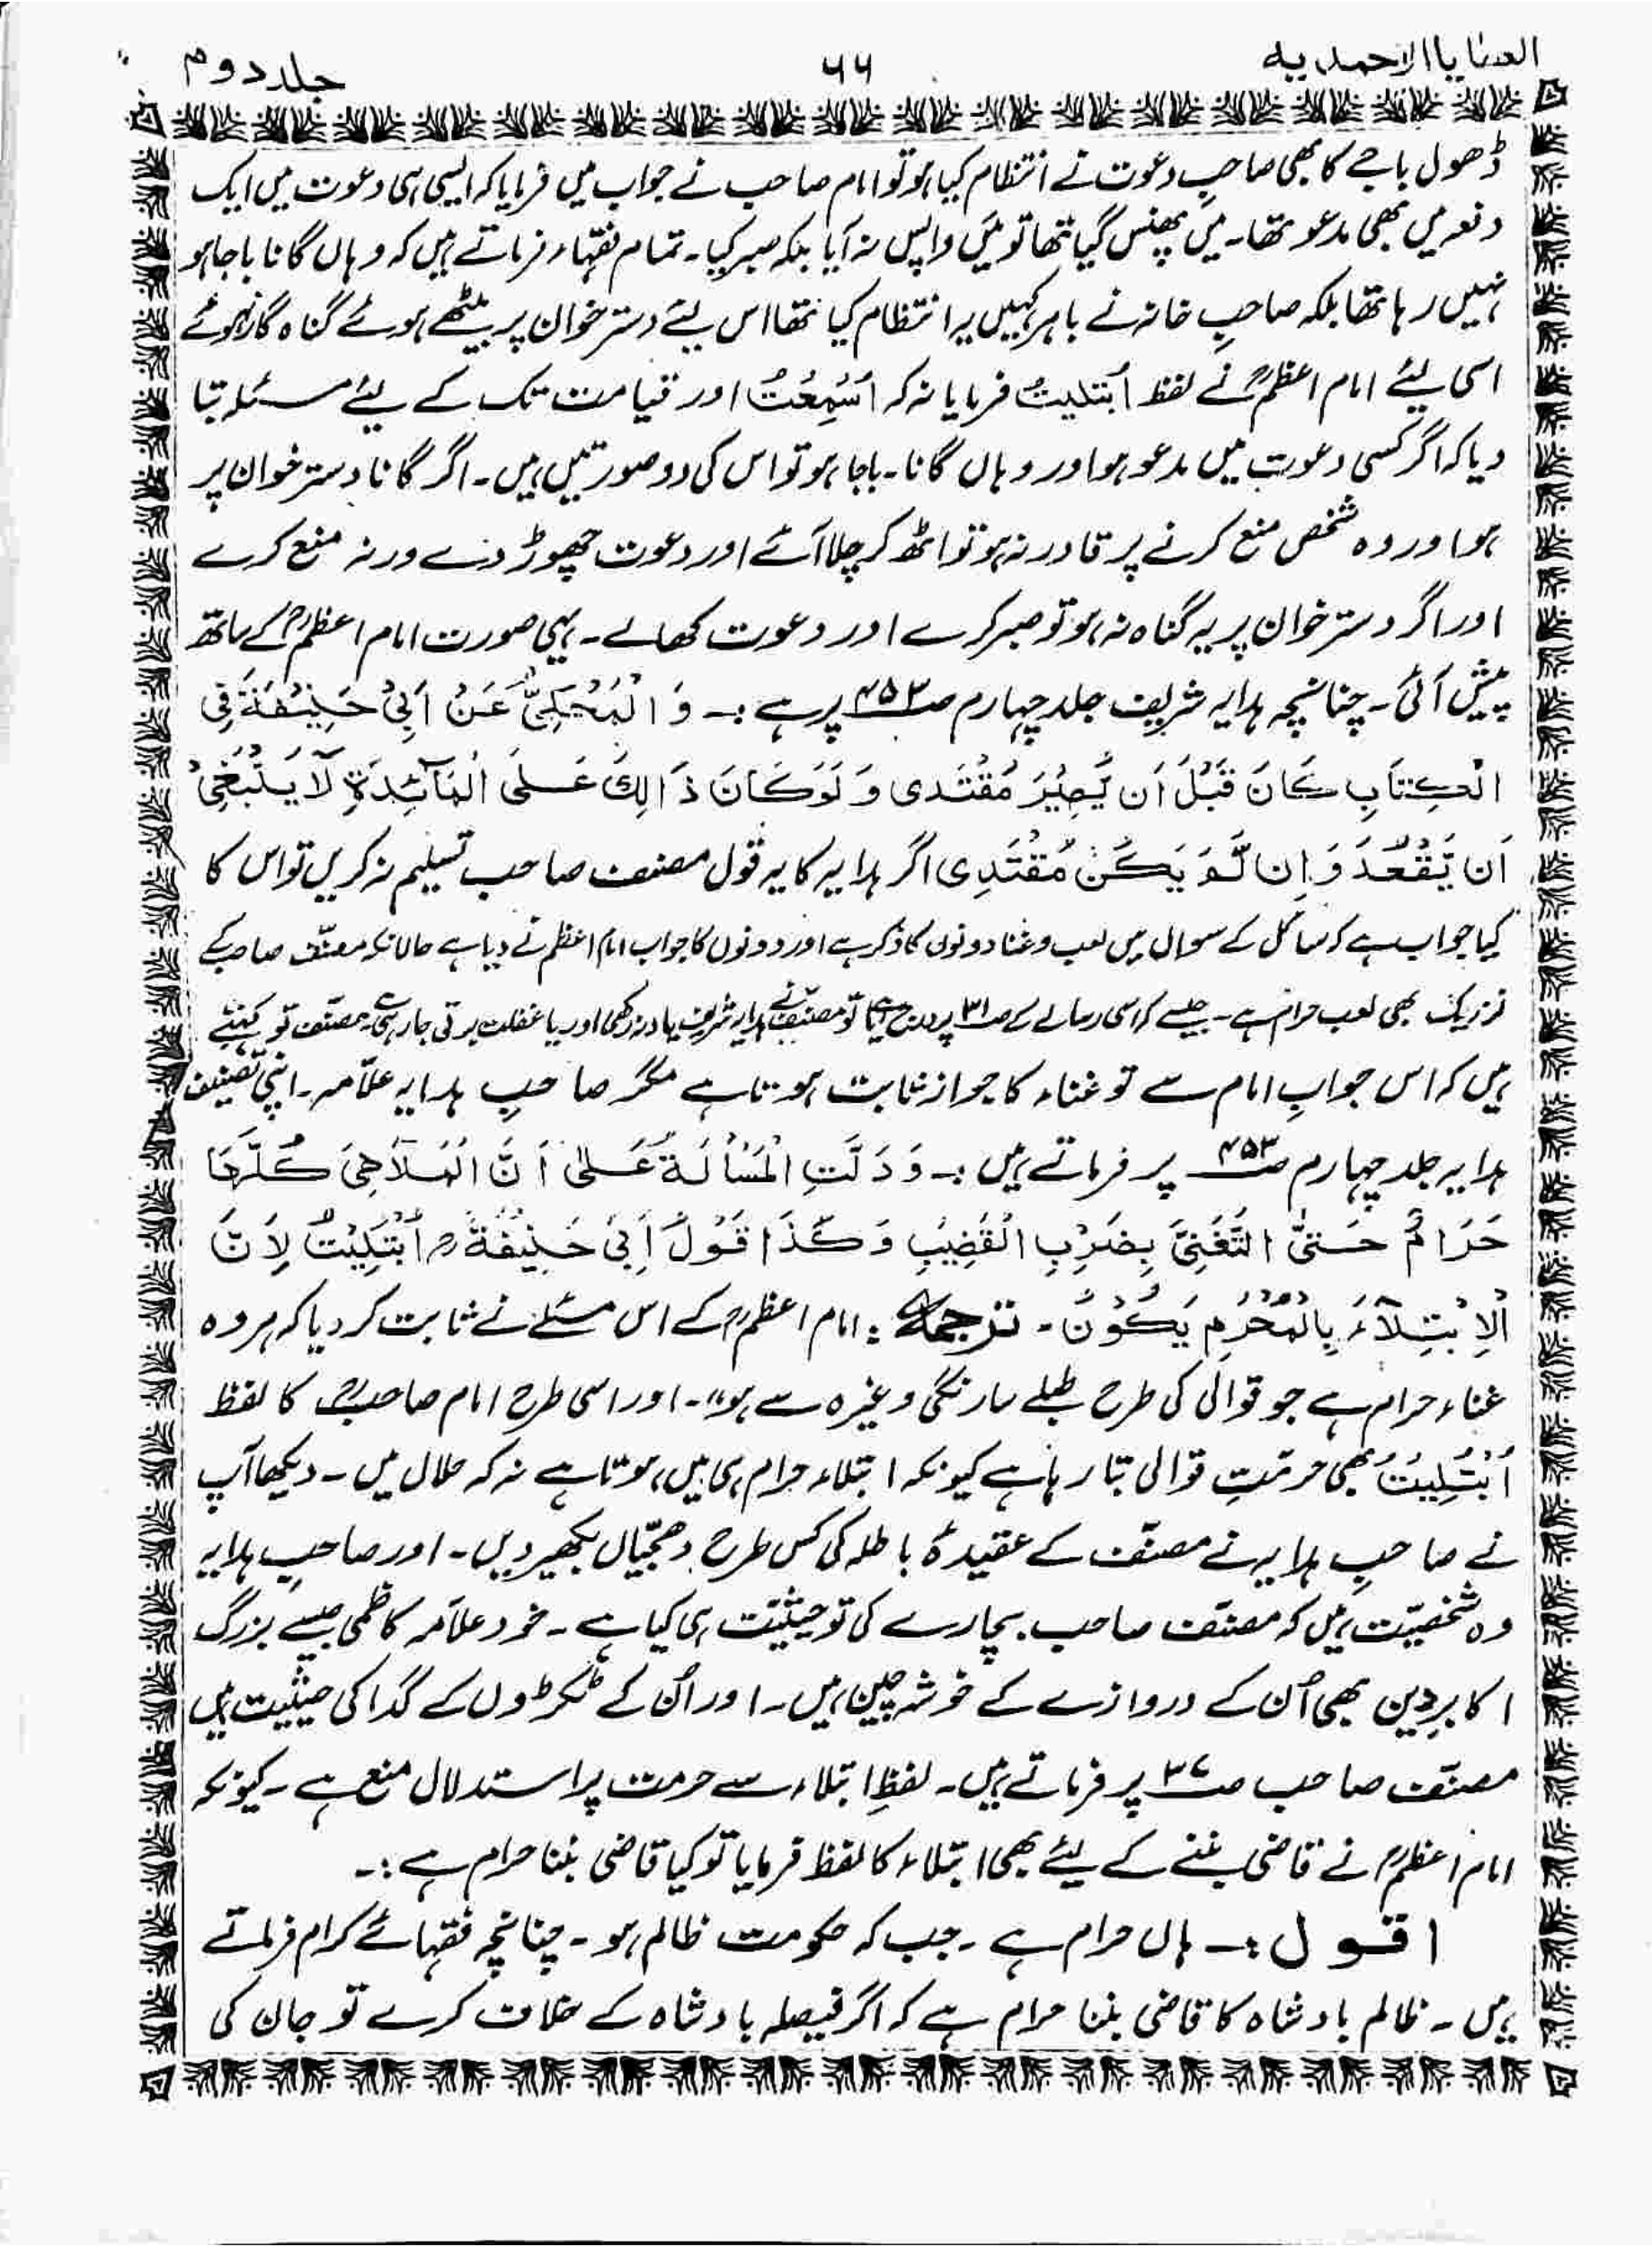 العطایا الاحمدیہ ۶۶ جلد دوم
ڈھول باجے کا بھی صاحبِ دعوت نے انتظام کیا ہو تو امام صاحب نے جواب میں فرمایا کہ ایسی ہی دعوت میں ایک
دفعہ میں بھی مدعو تھا۔ میں پھنس گیا تھا تو میں واپس نہ آیا بلکہ صبر کیا۔ تمام فقہاء فرماتے ہیں کہ وہاں گانا باجا ہو
نہیں رہا تھا بلکہ صاحبِ خانہ نے باہر کہیں یہ انتظام کیا تھا اس لیئے دستر خوان پر بیٹھے ہوئے گناہ گار نہ ہوئے
اسی لیئے امام اعظمؒ نے لفظ اُبتلیتُ فرمایا نہ کہ اَسْمِعْتُ اور قیامت تک کے لیئے مسئلہ بتا
دیا کہ اگر کسی دعوت میں مدعو ہو اور وہاں گانا۔ باجا ہو تو اس کی دو صورتیں ہیں۔ اگر گانا دستر خوان پر
ہو اور وہ شخص منع کرنے پر قادر نہ ہو تو اٹھ کر چلا آئے اور دعوت چھوڑ دے ورنہ منع کرے
اور اگر دستر خوان پر یہ گناہ نہ ہو تو صبر کرے اور دعوت کھالے۔ یہی صورت امام اعظمؒ کے ساتھ
پیش آئی۔ چنانچہ ہدایہ شریف جلد چہارم صـ۴۵۳ پر ہے :۔ وَ الْمَحْكِیُّ عَنْ اَبِیْ حَنِیْفَةَ فِی
الْكِتَابِ كَانَ قَبْلَ اَن یَّصِیْرَ مُقْتَدی وَ لَوْ كَانَ ذَالِكَ عَلَی الْمَآئِدَةِ لَا یَنْبَغِیْ
اَن یَّقْعُدَ وَ اِن لَّمْ یَكُنْ مُقْتَدِی اگر ہدایہ کا یہ قول مصنف صاحب تسلیم نہ کریں تو اس کا
کیا جواب ہے کہ سائل کے سوال میں لعب و غنا دونوں کا ذکر ہے اور دونوں کا جواب امام اعظم نے دیا ہے حالانکہ مصنّف صاحب کے
نزدیک بھی لعب حرام ہے۔ جیسے کہ اسی رسالے کے صـ۳۱ پر درج کیا تو مصنّف نے ہدایہ شریف یاد نہ رکھی اور یا غفلت برتی جا رہی ہے۔ مصنّف تو کہتے
ہیں کہ اس جوابِ امام سے تو غناء کا جواز ثابت ہوتا ہے مگر صاحبِ ہدایہ علّامہ۔ اپنی تصنیف
ہدایہ جلد چہارم صـ۴۵۳ پر فرماتے ہیں :۔ وَ دَلَّتِ الْمَسْأَلَةُ عَلٰی اَنَّ الْمَلَاهِیَ كُلَّهَا
حَرَامٌ حَتّٰی التَّغَنِّیَ بِضَرْبِ الْقَضِیْبِ وَ كَذَا قَوْلُ اَبِیْ حَنِیْفَةَؒ اُبْتُلِیْتُ لِاَنَّ
الْاِبْتِلَآءَ بِالْمُحْرِمِ یَكُوْنُ۔ ترجمہ : امام اعظمؒ کے اس مسئلے نے ثابت کر دیا کہ ہر وہ
غناء حرام ہے جو قوالی کی طرح طبلے سارنگی وغیرہ سے ہو،،۔ اور اسی طرح امام صاحبؒ کا لفظ
اُبْتُلِیْتُ بھی حرمتِ قوالی بتا رہا ہے کیونکہ ابتلاء حرام ہی میں ہوتا ہے نہ کہ حلال میں۔ دیکھا آپ
نے صاحبِ ہدایہ نے مصنّف کے عقیدۂ باطلہ کی کس طرح دھجّیاں بکھیر دیں۔ اور صاحبِ ہدایہ
وہ شخصیّت ہیں کہ مصنّف صاحب بیچارے کی تو حیثیّت ہی کیا ہے۔ خود علاّمہ کاظمی جیسے بزرگ
اکابرِ دین بھی اُن کے دروازے کے خوشہ چین ہیں۔ اور اُن کے ٹکڑوں کے گدا کی حیثیت ہیں
مصنّف صاحب صـ۳۷ پر فرماتے ہیں۔ لفظِ ابتلاء سے حرمت پر استدلال منع ہے۔ کیونکہ
امام اعظمؒ نے قاضی بننے کے لیئے بھی ابتلاء کا لفظ فرمایا تو کیا قاضی بننا حرام ہے :۔
اقول :۔ ہاں حرام ہے۔ جب کہ حکومت ظالم ہو۔ چنانچہ فقہائے کرام فرماتے
ہیں۔ ظالم بادشاہ کا قاضی بننا حرام ہے کہ اگر فیصلہ بادشاہ کے خلاف کرے تو جان کی